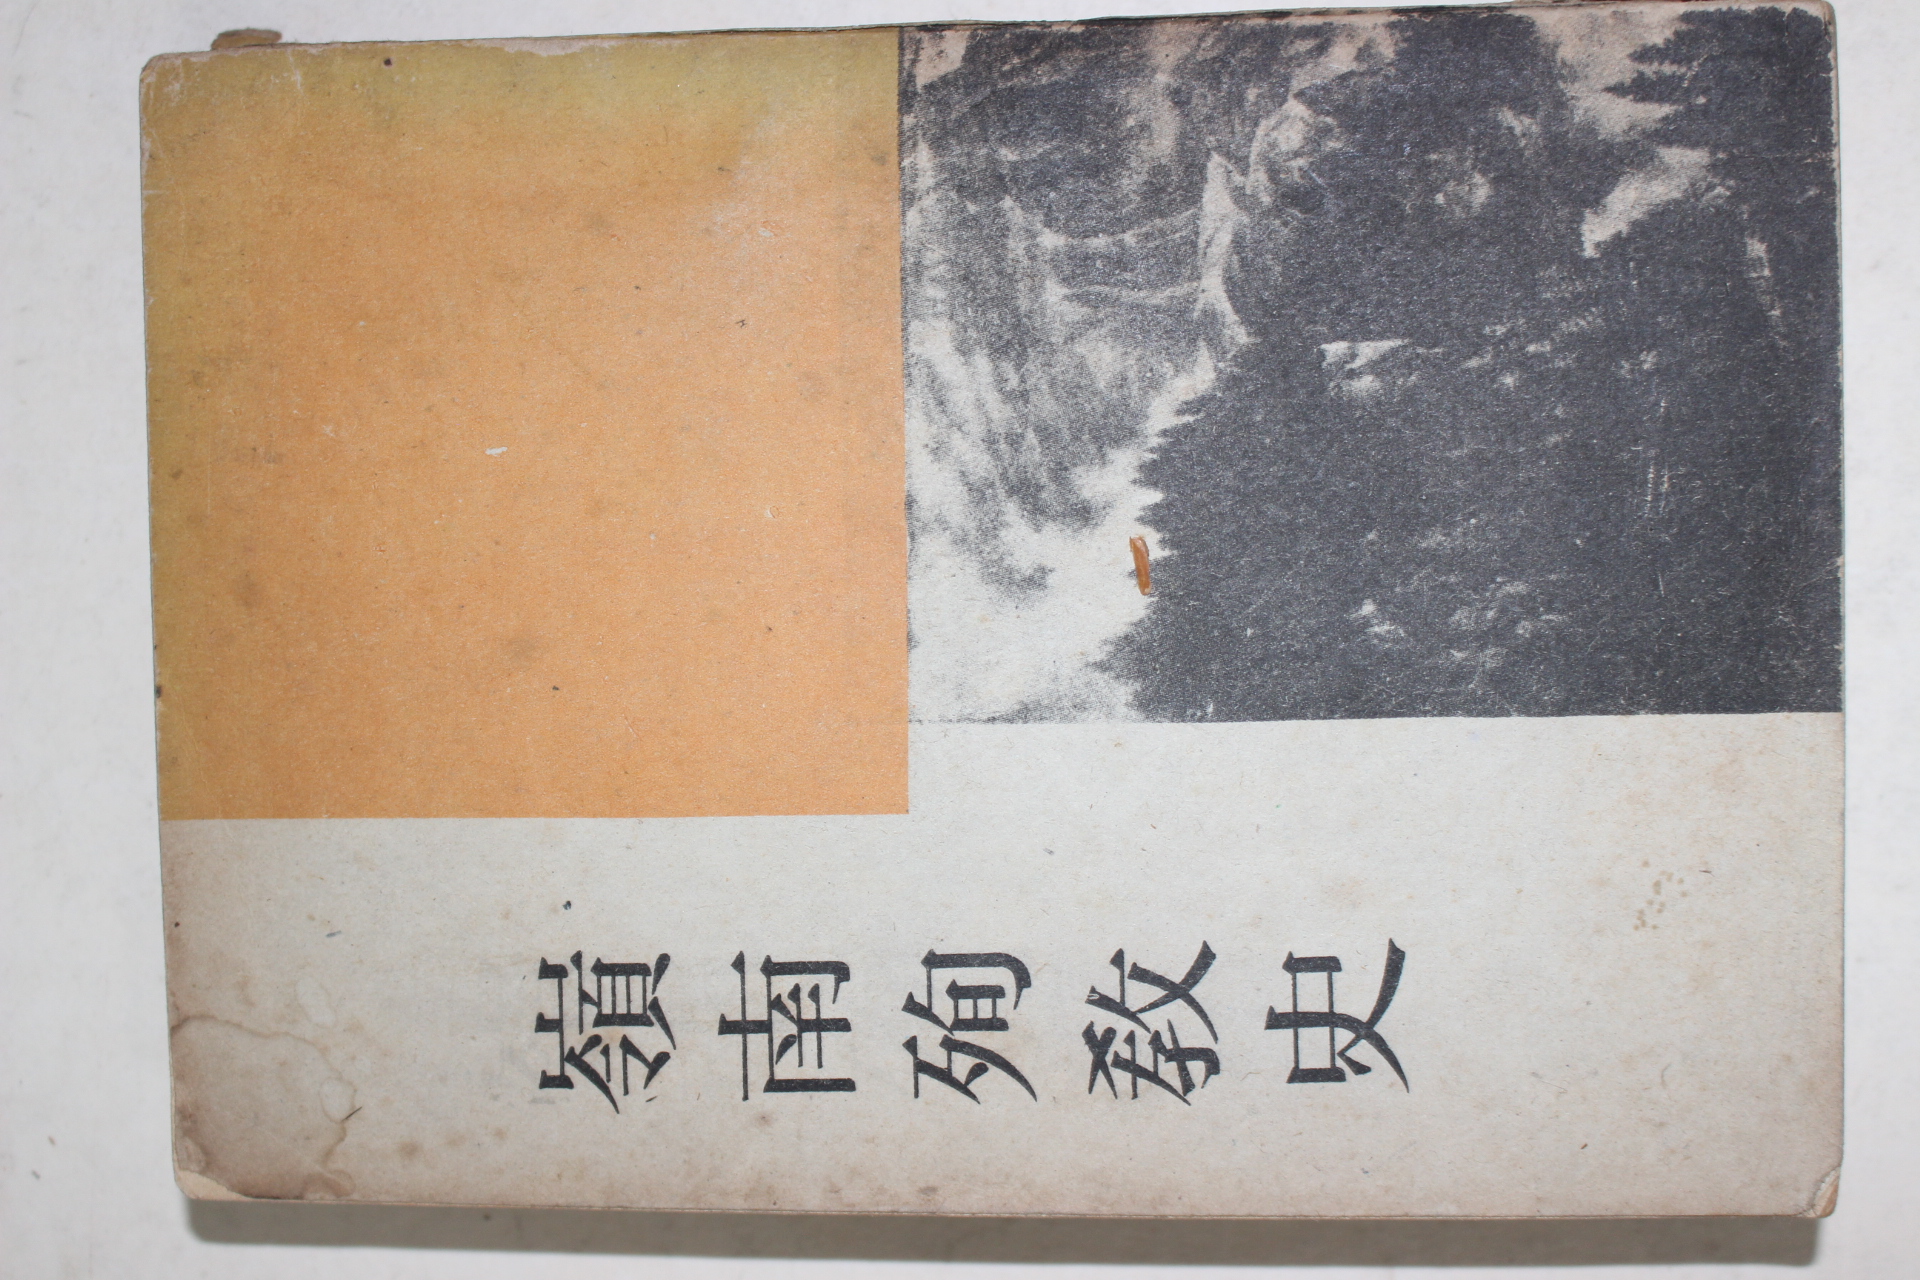 嶺南殉敎史